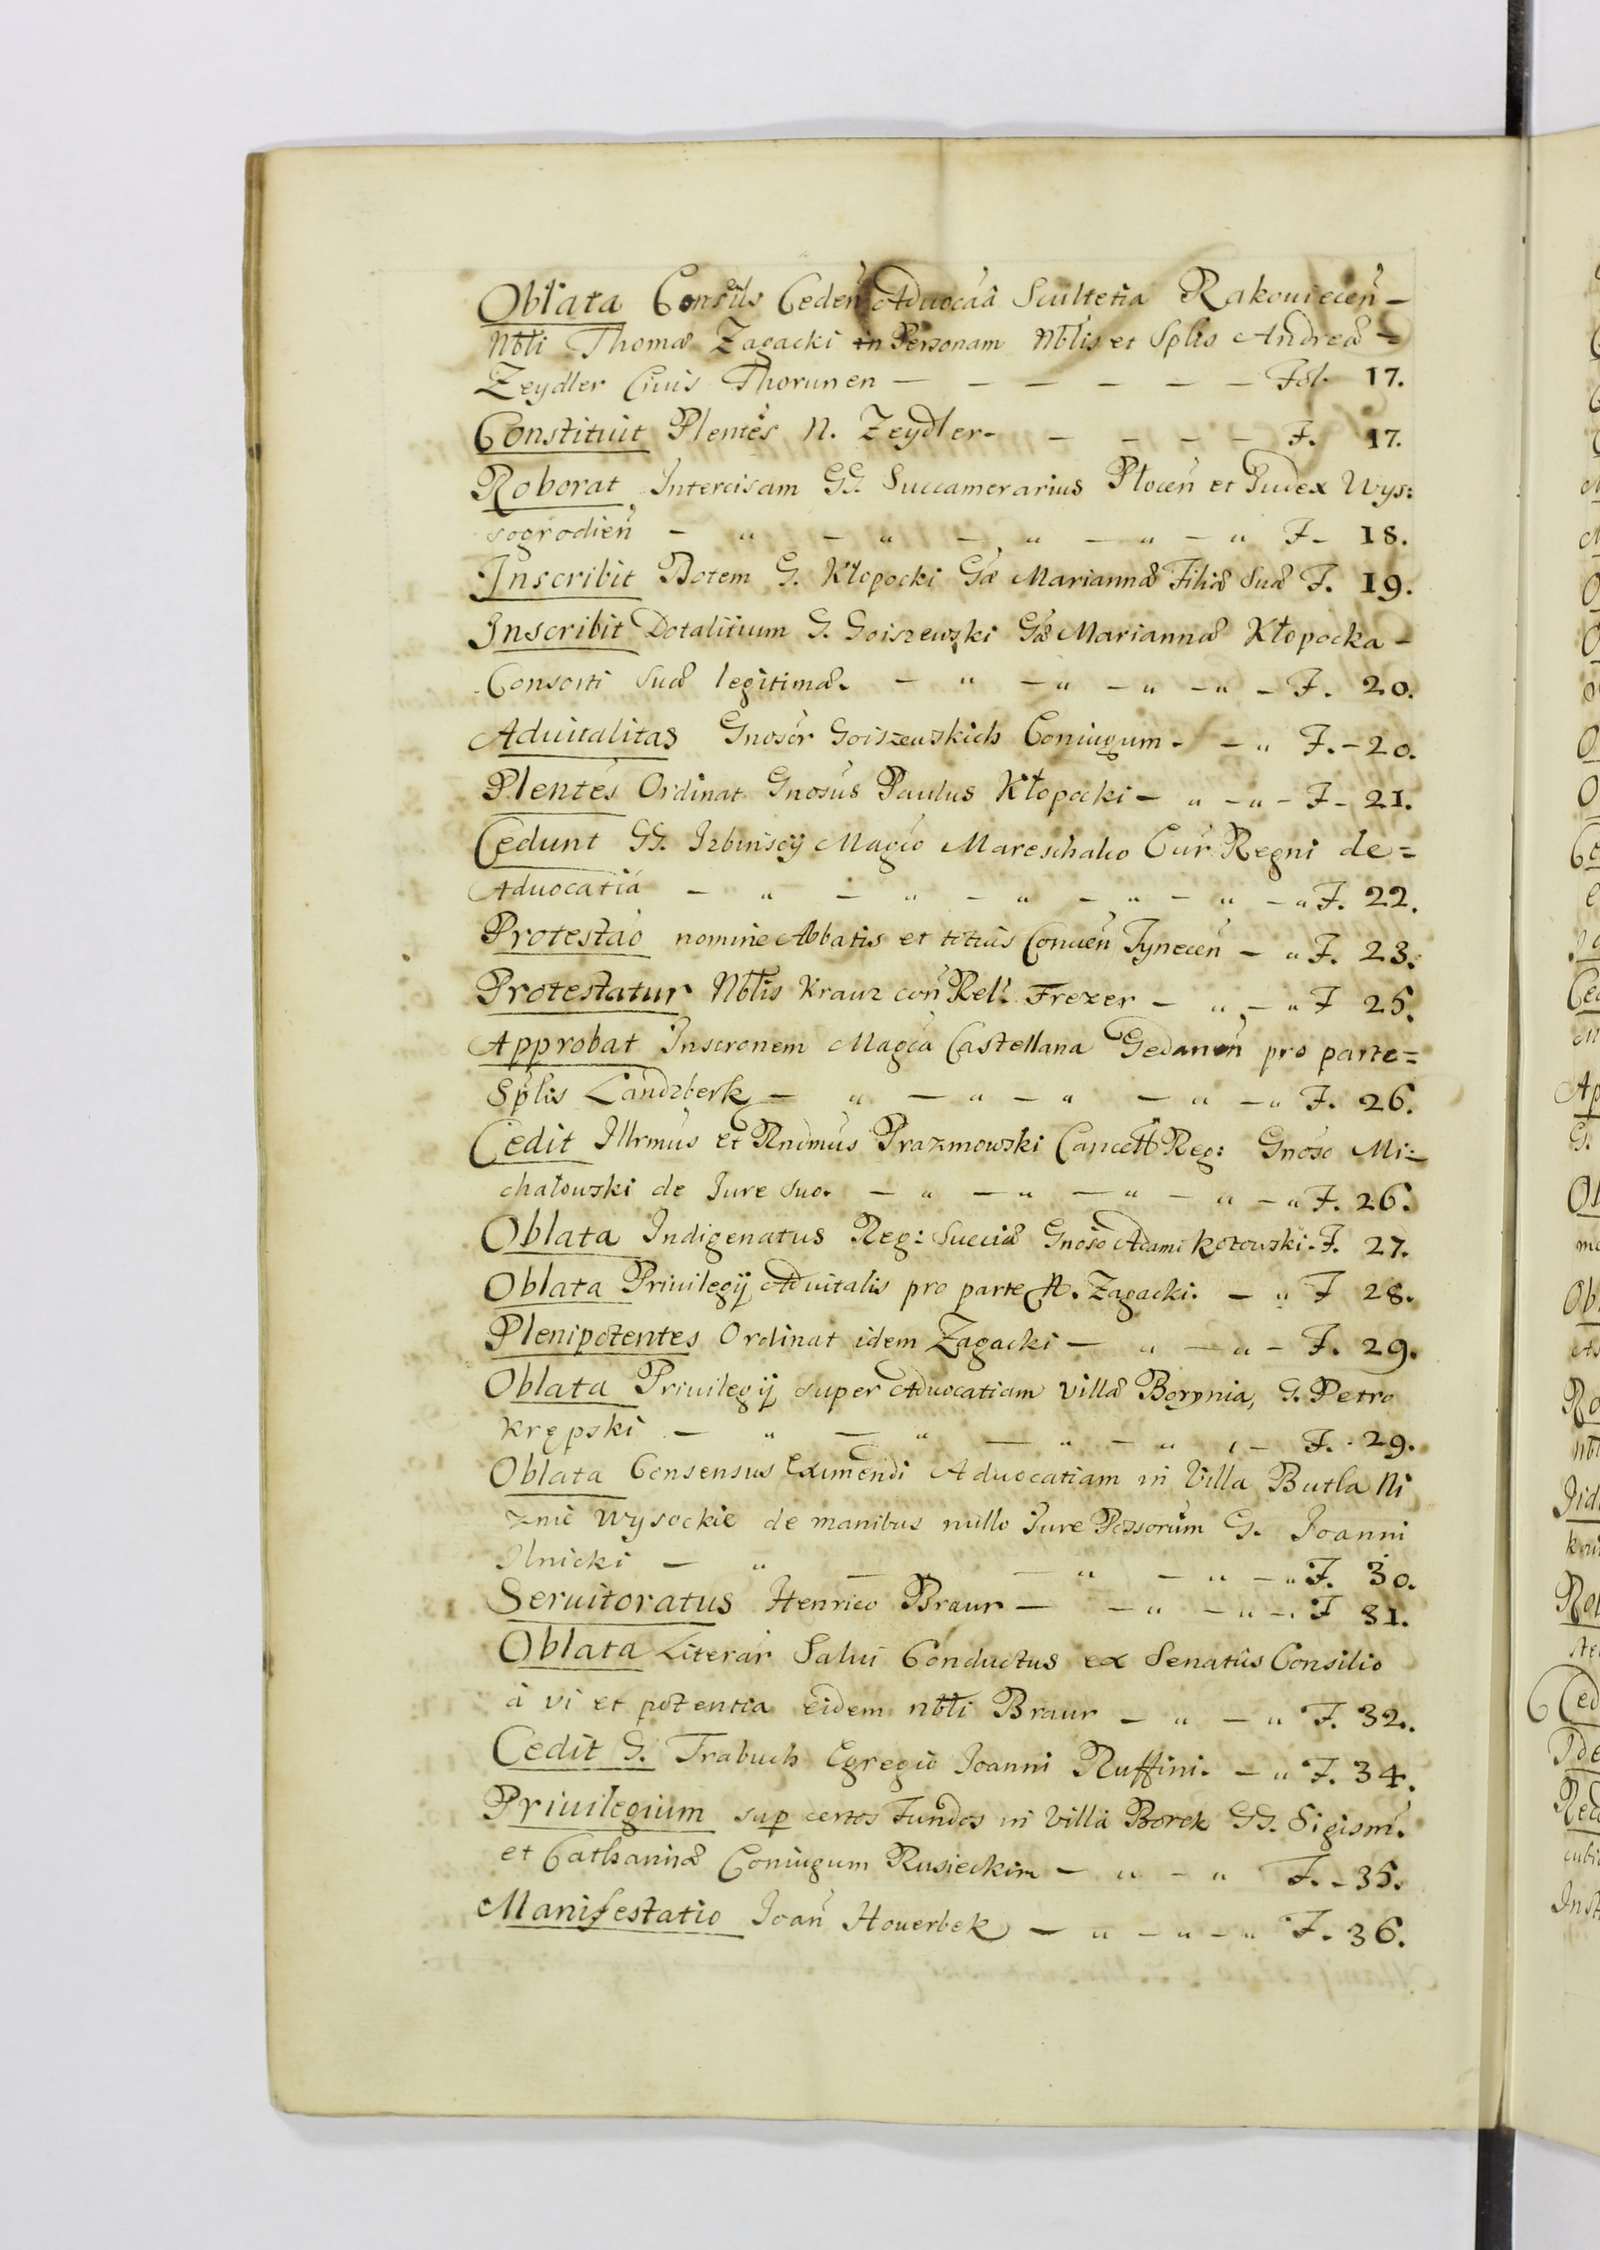 Oblata Consils Cedeñ Advocãa Scultetia Rakoviecen̄ –
Nbli Thomæ Zagacki in Personam Nblis et Splis Andreæ =
Zeydler Civis Thorunen – – – – – – Fol. 17.
Constituit Plentes N. Zeydler. – – – – F. 17.
Roborat Intercisam GG. Succamerarius Plocen̄ et Judex Wys:
sogrodien̄ – " – " – " – " – " F – 18.
Inscribit Dotem G. Kłopocki Gæ Mariannæ Filiæ Suæ F. 19.
Inscribit Dotalitium G. Goiszewski Gæ Mariannæ Kłopocka –
Consorti Suæ legitimæ. – " – " – " – " – F. 20.
Advitalitas Gnosor̄ Goiszewskich Coniugum. – " F. – 20.
Plentes Ordinat Gnosus Paulus Kłopocki – " – " – F – 21.
Cedunt GG. Izbinscÿ Magco Mareschalco Cur̄ Regni de =
Advocatia – " – " – " – " – " – " F. 22.
Protestaõ nomine Abbatis et totius Conven̄ Tynecen̄ – " F. 23.
Protestatur Nblis Krauz con̄ Rel: Frezer – " – " F 25.
Approbat Inscronem Magca Castellana Gedanen̄ pro parte =
Splis Landzberk – " – " – " – " – " F. 26.
Cedit Illrmus et Rndmus Prazmowski Cancell Reg: Gnoso Mi =
chałowski de Jure suo. – " – " – " – " – " F. 26.
Oblata Indigenatus Reg: Sueciæ Gnoso Adami Kotowski. F. 27.
Oblata Privilegÿ Advitalis pro parte N. Zagacki. – " F 28.
Plenipotentes Ordinat idem Zagacki – " – " – F. 29.
Oblata Privilegÿ super Advocatiam Villæ Borynia, G. Petro
Krępski – " – " – " – " – F. 29.
Oblata Consensus Eximendi Advocatiam in Villa Butla Ni
znie Wysockie de manibus nullo Jure Possorum G. Joanni
Ilnicki – " – – " – " – " F. 30.
Servitoratus Henrico Braur – – " – " – " F 31.
Oblata Literar̄ Salvi Conductus ex Senatus Consilio
à vi et potentia eidem nbli Braur – " – " F. 32.
Cedit G. Trabuch Egregio Joanni Ruffini. – " F. 34.
Privilegium sup certos Fundos in Villa Borek GG. Sigism.
et Catharinæ Coniugum Rusieckim – " – " F. – 35.
Manifestatio Joan̄ Hoverbek – " – " – " F. 36.